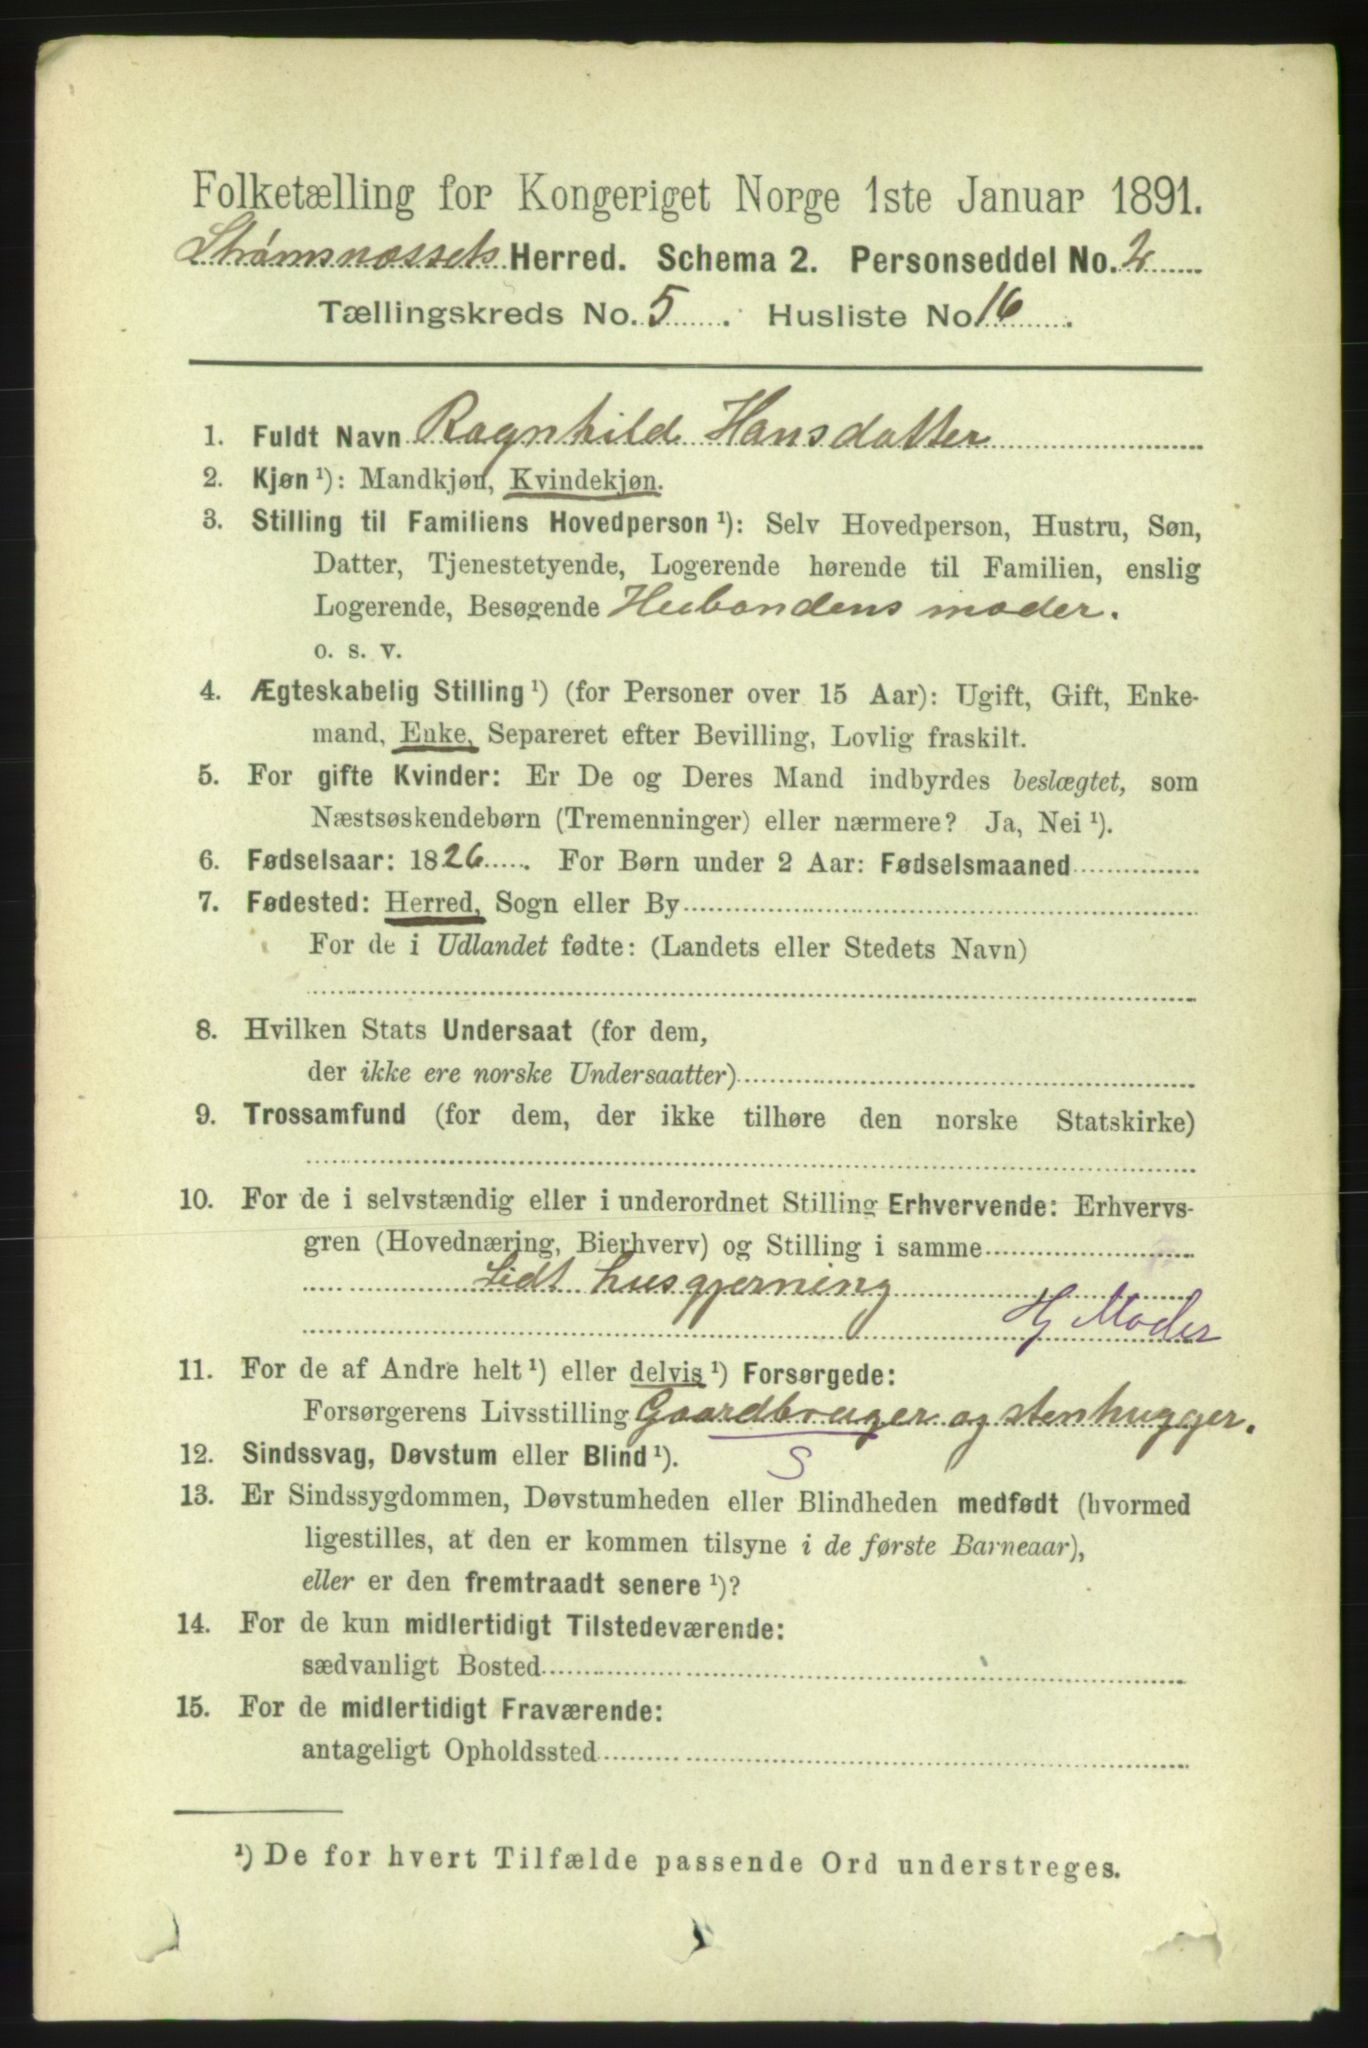 Folketælling for Kongeriget Norge 1ste Januar 1891.
Strømsnæssets Herred. Schema 2. Personseddel No. 2
Tællingskreds No. 5. Husliste No 16.
1. Fuldt Navn Ragnhild Hansdatter
2. Kjøn ¹): Mandkjøn, Kvindekjøn.
3. Stilling til Familiens Hovedperson ¹): Selv Hovedperson, Hustru, Søn,
Datter, Tjenestetyende, Logerende hørende til Familien, enslig
Logerende, Besøgende Husbondens moder.
o. s. v.
4. Ægteskabelig Stilling ¹) (for Personer over 15 Aar): Ugift, Gift, Enke-
mand, Enke, Separeret efter Bevilling, Lovlig fraskilt.
5. For gifte Kvinder: Er De og Deres Mand indbyrdes beslægtet, som
Næstsøskendebørn (Tremenninger) eller nærmere? Ja, Nei ¹).
6. Fødselsaar: 1826. For Børn under 2 Aar: Fødselsmaaned
7. Fødested: Herred, Sogn eller By
For de i Udlandet fødte: (Landets eller Stedets Navn)
8. Hvilken Stats Undersaat (for dem,
der ikke ere norske Undersaatter)
9. Trossamfund (for dem, der ikke tilhøre den norske Statskirke)
10. For de i selvstændig eller i underordnet Stilling Erhvervende: Erhvervs-
gren (Hovednæring, Bierhverv) og Stilling i samme
Lidt husgjerning
Hf Moder
11. For de af Andre helt ¹) eller delvis ¹) Forsørgede:
Forsørgerens Livsstilling Gaardbruger og stenhugger.
12. Sindssvag, Døvstum eller Blind ¹). S
13. Er Sindssygdommen, Døvstumheden eller Blindheden medfødt (hvormed
ligestilles, at den er kommen tilsyne i de første Barneaar),
eller er den fremtraadt senere ¹)?
14. For de kun midlertidigt Tilstedeværende:
sædvanligt Bosted
15. For de midlertidigt Fraværende:
antageligt Opholdssted
¹) De for hvert Tilfælde passende Ord understreges.